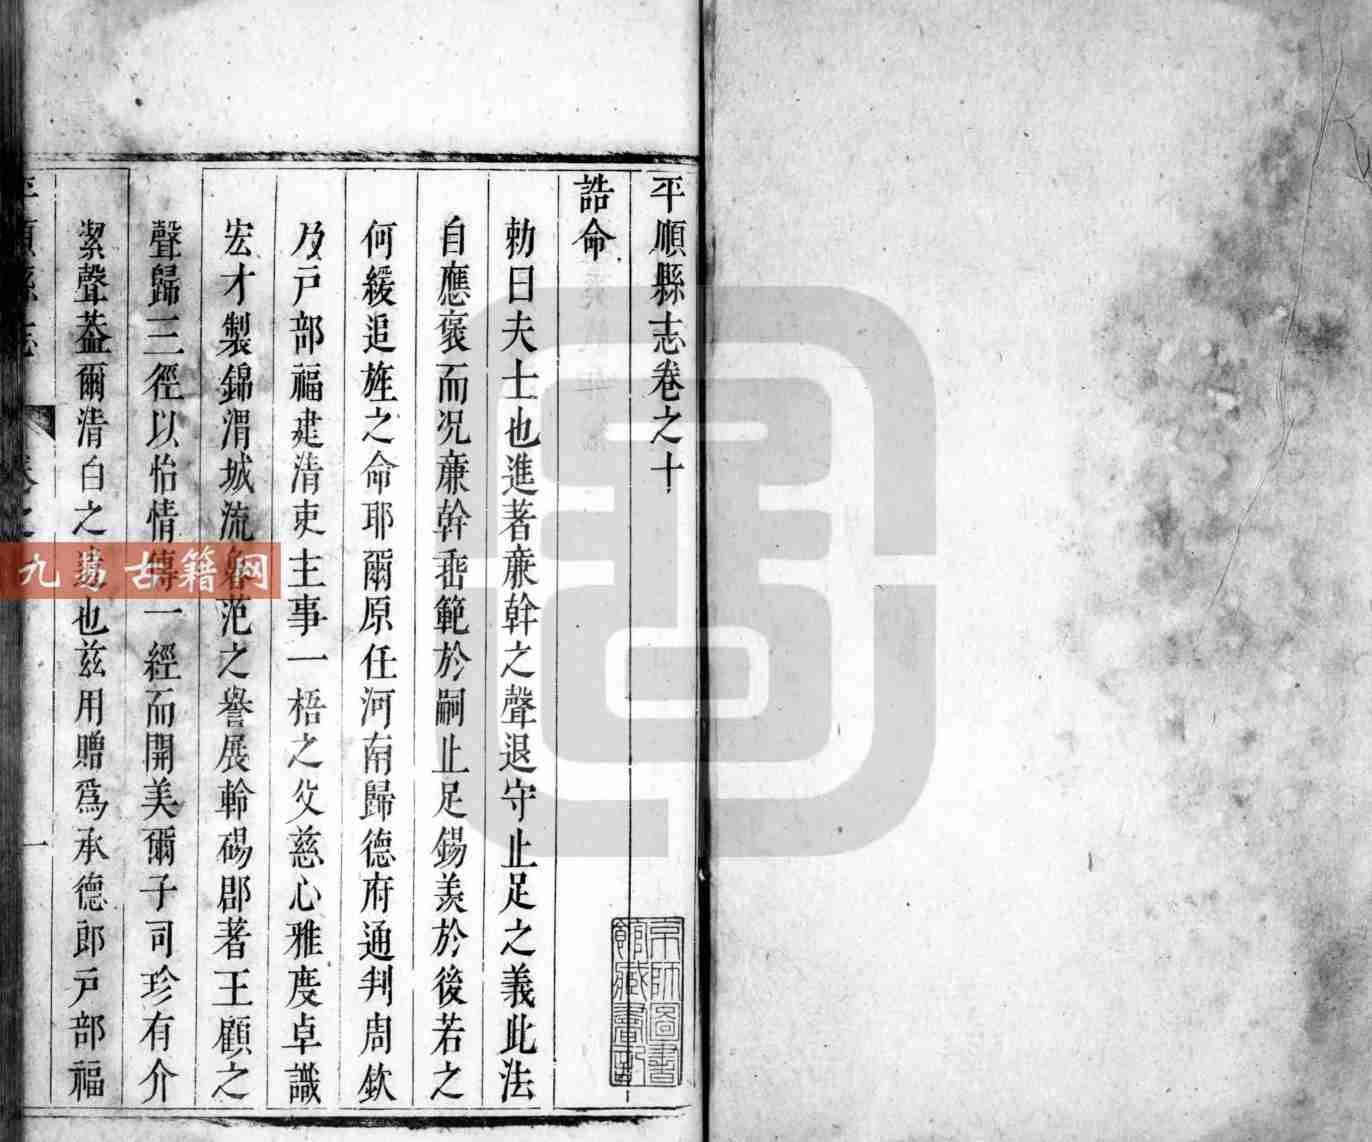 平順縣志卷之十
誥命
勅曰夫士也進著亷幹之聲退守止足之義此法
自應褒而况亷幹埀範於嗣止足錫羙於後若之
何緩追旌之命耶爾原任河南歸德府通判周欽
乃戸部福建清吏主事一梧之父慈心雅度卓識
宏才製錦渭城流范之譽展軨碭郡著王顧之
聲歸三徑以怡情傳一經而開美爾子司珍有介
潔聲葢爾清白之遺也兹用贈爲承德郎戸部福
平順縣志
卷之
一
京師圖書
館藏書記
九易古籍网